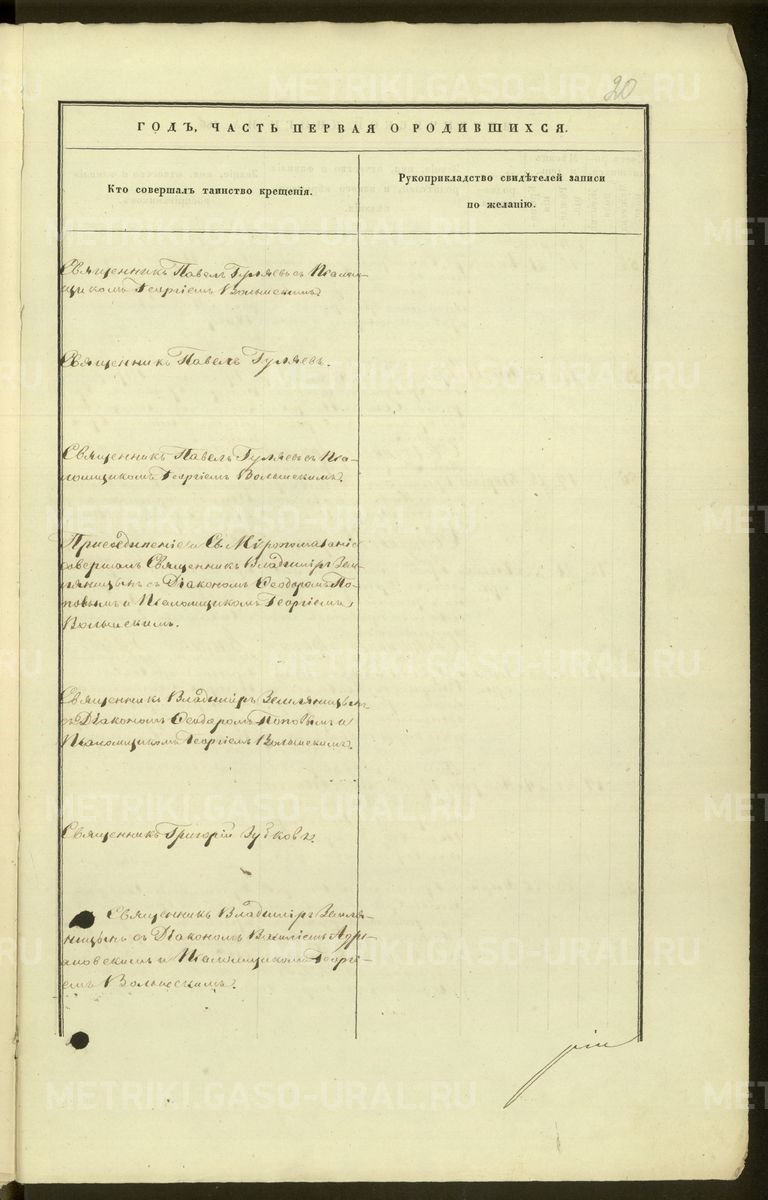 20
ГОДЪ, ЧАСТЬ ПЕРВАЯ О РОДИВШИХСЯ.
Кто совершалъ таинство крещенія.
Рукоприкладство свидѣтелей записи
по желанію.
Священникъ Павелъ Гуляевъ съ Псалом-
щикомъ Георгіемъ
Священникъ Павелъ Гуляевъ.
Священникъ Павелъ Гуляевъ съ Пса-
ломщикомъ Георгіемъ
Присоединеніе и Св. Мѵропомазаніе
совершалъ Священникъ Владиміръ Зем-
ляницынъ съ Діакономъ Ѳеодоромъ По-
повымъ и Псаломщикомъ Георгіемъ
Священникъ Владиміръ Земляницынъ
съ Діакономъ Ѳеодоромъ Поповымъ и
Псаломщикомъ Георгіемъ
Священникъ Григорій Зубковъ.
Священникъ Владиміръ Земля-
ницынъ съ Діакономъ Василіемъ Адрі-
ановскимъ и Псаломщикомъ Георгі-
емъ
METRIKI.GASO-URAL.RU